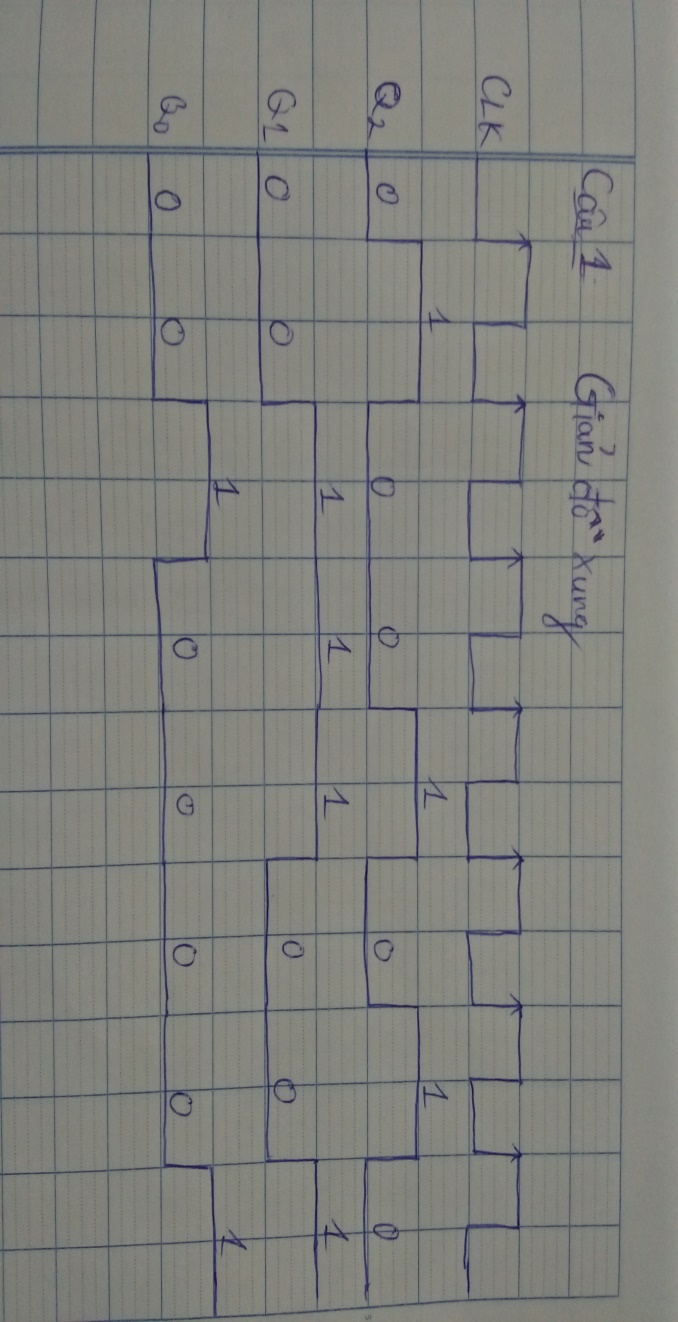 Câu 1. Giản đồ xung
CLK
Q2 0 1 0 0 1 0 1 0
Q1 0 0 1 1 1 0 0 1
Q0 0 0 1 0 0 0 0 1